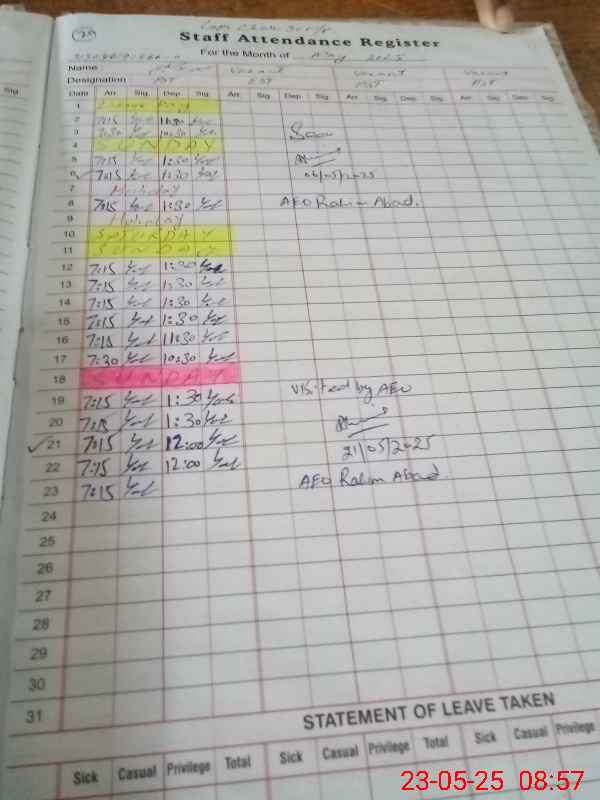 Staff Attendance Register
For the Month of May 2025
Name : Vacant Vacant Vacant
Designation PST PST PST PST
Date Arr. Sig. Dep. Sig. Arr. Sig. Dep. Sig. Arr. Sig. Dep. Sig. Arr. Sig. Dep. Sig.
1
2 7:15 11:30
3 7:30 10:30 Seen
4 SUNDAY
5 7:15 1:30
6 7:15 1:30 06/05/2025
7 Holiday
8 7:15 1:30 AEO Rahim Abad.
9 Holiday
10 SATURDAY
11 SUNDAY
12 7:15 1:30
13 7:15 1:30
14 7:15 1:30
15 7:15 1:30
16 7:15 11:30
17 7:30 10:30
18 SUNDAY
19 7:15 1:30 Visited by AEO
20 7:15 1:30
21 7:15 12:00 21/05/2025
22 7:15 12:00 AEO Rahim Abad.
23 7:15
24
25
26
27
28
29
30
31
STATEMENT OF LEAVE TAKEN
Sick Casual Privilege Total Sick Casual Privilege Total Sick Casual Privilege
23-05-25 08:57